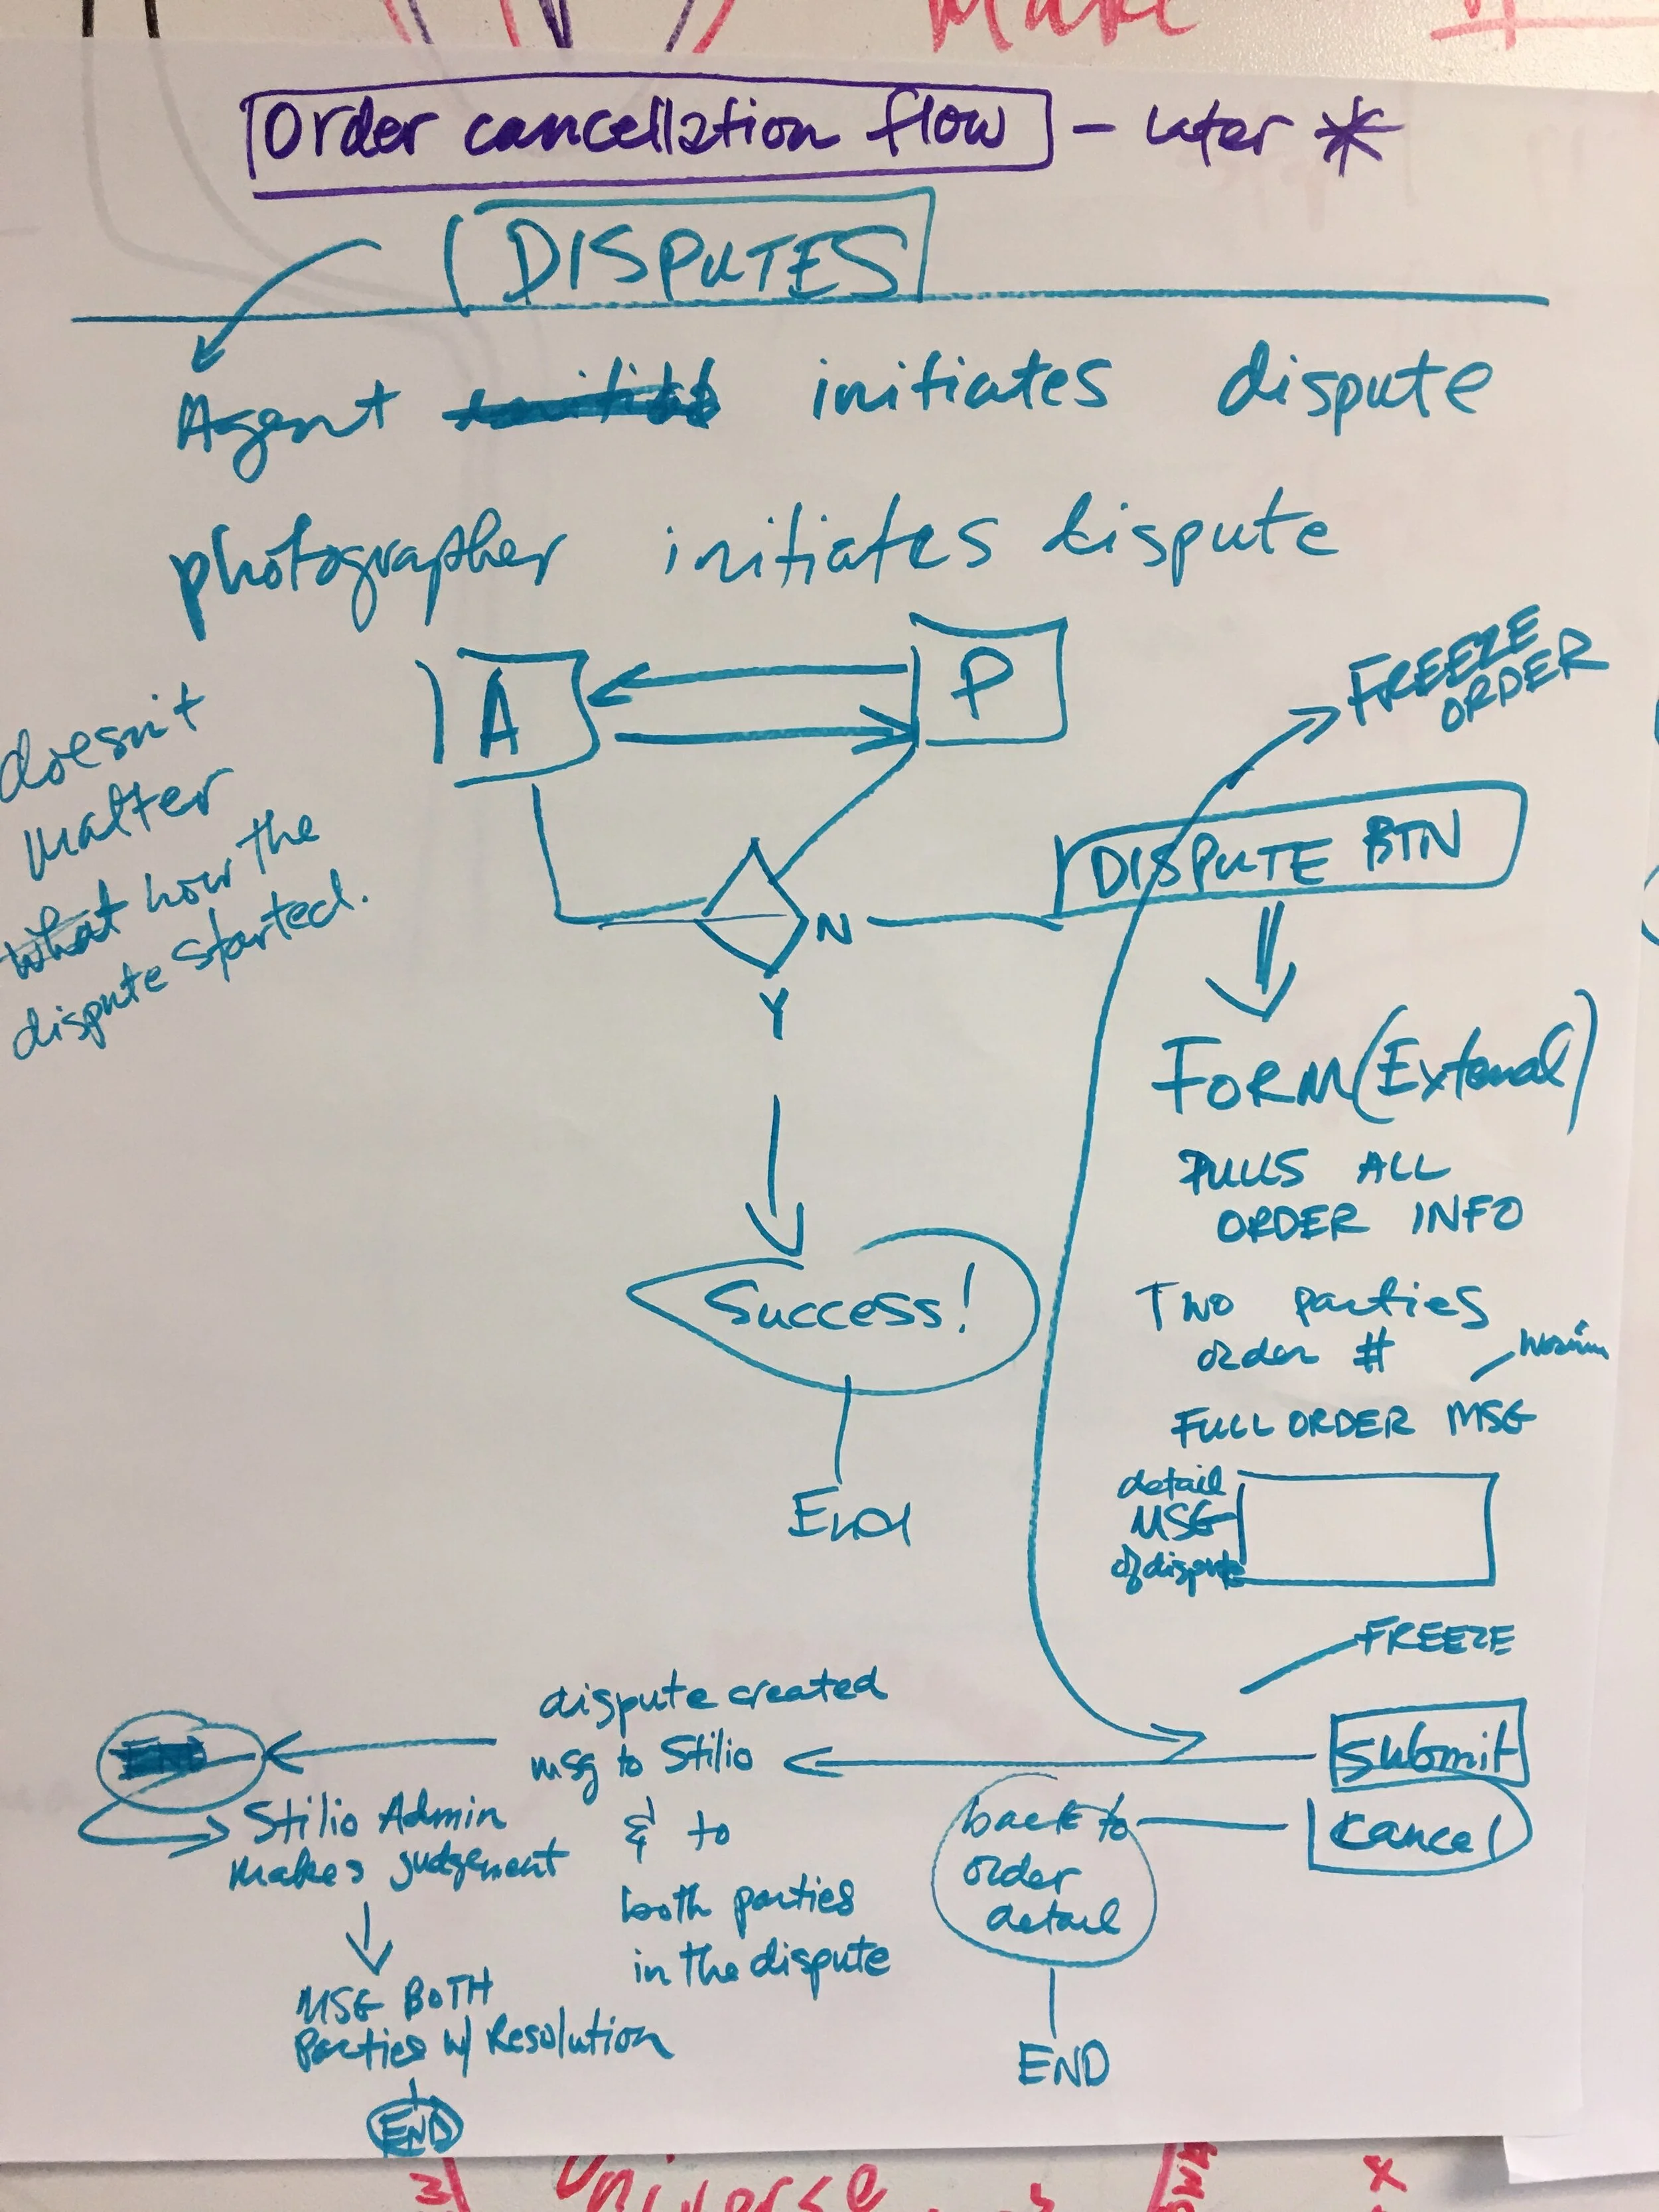 Make
Order cancellation flow - later *
DISPUTES
Agent initiates dispute
photographer initiates dispute
A
P
FREEZE
ORDER
doesn't
matter
what how the
dispute started.
DISPUTE BTN
N
Y
FORM (External)
PULLS ALL
ORDER INFO
Two parties
order #
FULL ORDER MSG
detail
MSG
of dispute
Success!
End
FREEZE
submit
cancel
dispute created
msg to Stilio
& to
both parties
in the dispute
back to
order
detail
END
Stilio Admin
makes judgement
MSG BOTH
Parties w/ Resolution
END
Universe